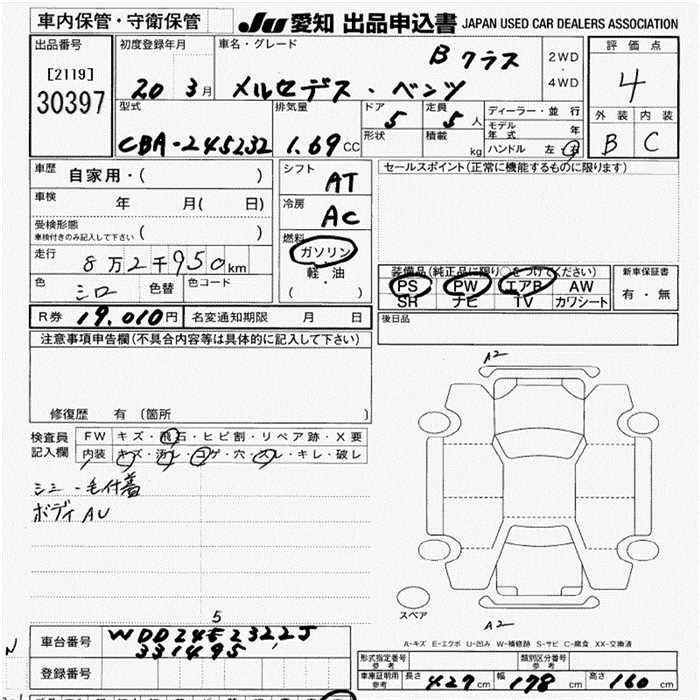 車内保管・守衛保管 JU 愛知 出品申込書 JAPAN USED CAR DEALERS ASSOCIATION
出品番号 初度登録年月 車名・グレード 評価点
[2119] Bクラス 2WD
30397 20 3月 メルセデス・ベンツ 4WD 4
型式 排気量 ドア 定員 ディーラー・並行 外装 内装
CBA-245232 1.69CC 5 5人 モデル年式 年 B C
形状 積載 kg ハンドル 左・右
車歴 自家用・( ) シフト AT セールスポイント(正常に機能するものに限ります)
車検 年 月( 日) 冷房 AC
受検形態
車検付きのみ記入して下さい ( ) 燃料
走行 8万2千950km ガソリン
軽・油
装備品(純正品に限り○をつけてください) 新車保証書
色 シロ 色替 色コード ( ) PS PW エアB AW 有・無
SH ナビ TV カワシート
R券 19,010円 名変通知期限 月 日 後日品
注意事項申告欄(不具合内容等は具体的に記入して下さい)
A2
修復歴 有 (箇所
検査員 FW キズ・飛石・ヒビ割・リペア跡・X要
記入欄 内装 キズ・汚レ・コゲ・穴・スレ・キレ・破レ
シミ・毛付着
ボディAU
スペア
A2
5
A-キズ E-エクボ U-凹み W-補修跡 S-サビ C-腐食 XX-交換済
N 車台番号 WDD2452322J
331495
登録番号
形式指定番号参考 類別区分番号参考
車庫証明用参考 長さ 427cm 幅 178cm 高さ 160cm